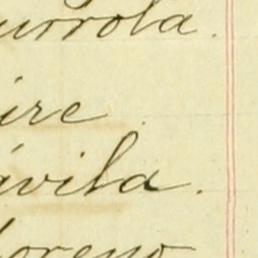 urrola.
ire
ávila.
oreno